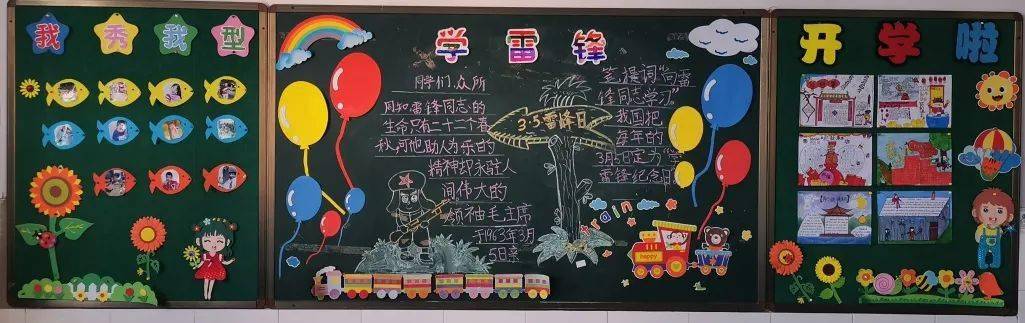 我秀我型
学雷锋
开学啦
同学们,众所
周知雷锋同志的
生命只有二十二个春
秋,可他助人为乐的
精神却永驻人
间伟大的
领袖毛主席
于1963年3月
5日亲
笔提词"向雷
锋同志学习"
我国把
每年的
3月5日定为"学
雷锋纪念日"
3·5雷锋日
rain
happy